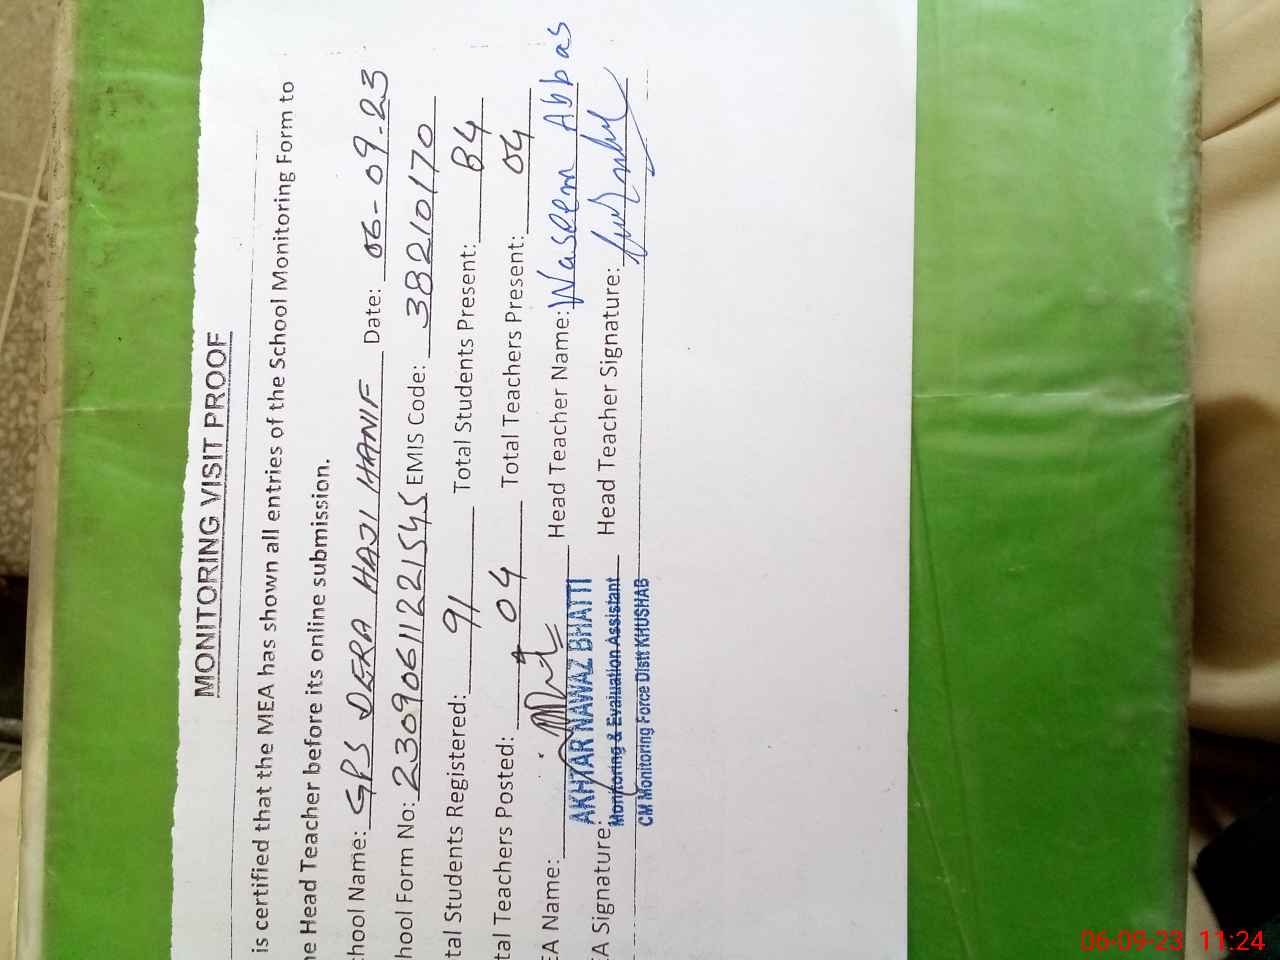 MONITORING VISIT PROOF
is certified that the MEA has shown all entries of the School Monitoring Form to
e Head Teacher before its online submission.
hool Name: GPS DERA HAJI HANIF Date: 06-09-23
hool Form No: 23090611221545 EMIS Code: 38210170
tal Students Registered: 91 Total Students Present: 84
tal Teachers Posted: 04 Total Teachers Present: 04
EA Name: AKHTAR NAWAZ BHATTI Head Teacher Name: Waseem Abbas
Monitoring & Evaluation Assistant
EA Signature: Head Teacher Signature:
CM Monitoring Force Distt KHUSHAB
06-09-23 11:24